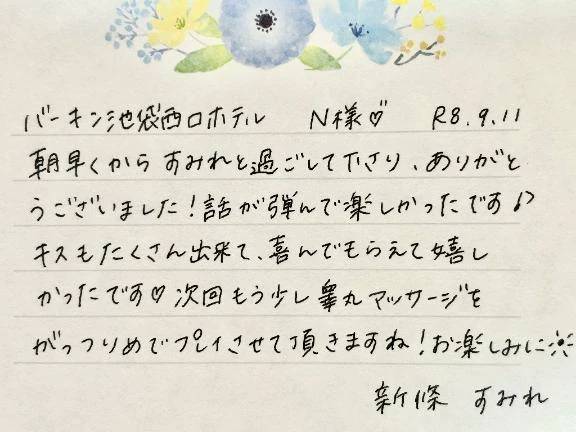 バーキン池袋西口ホテル　N様♡　R8.9.11
朝早くからすみれと過ごして下さり、ありがと
うございました！話が弾んで楽しかったです♪
キスもたくさん出来て、喜んでもらえて嬉し
かったです♡次回もう少し睾丸マッサージを
がっつりめでプレイさせて頂きますね！お楽しみに☀
新條　すみれ